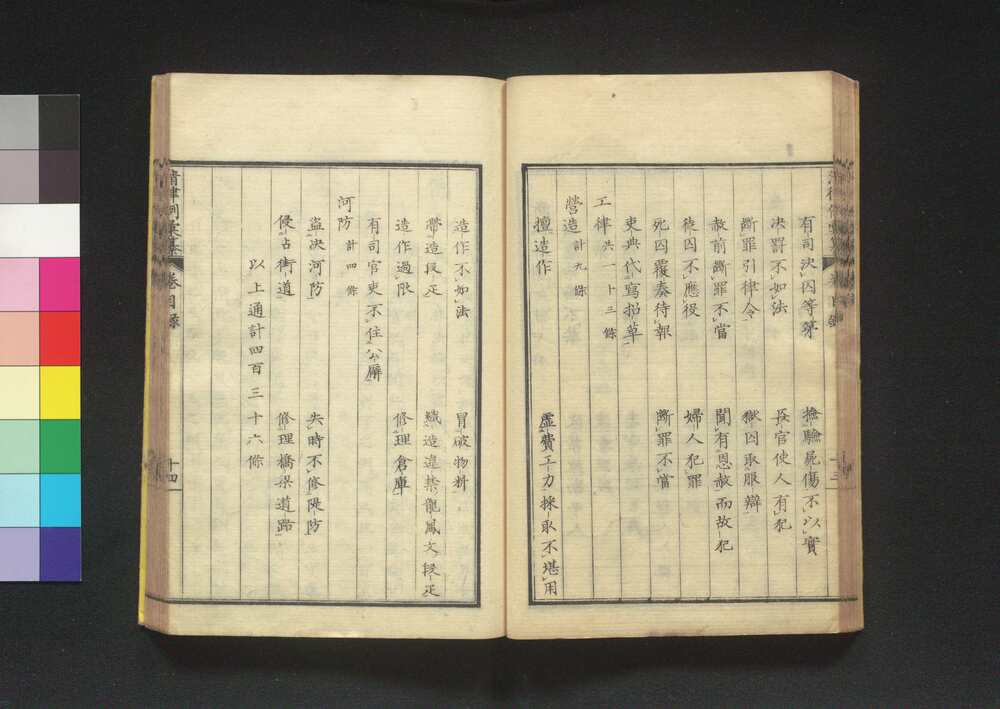 有司決囚等第
檢驗屍傷不以實
決罰不如法
長官使人有犯
斷罪引律令
獄囚取服辯
赦前斷罪不當
聞有恩赦而故犯
徒囚不應役
婦人犯罪
死囚覆奏待報
斷罪不當
吏典代寫招草
工律 共一十三條
營造 計九條
擅造作
虛費工力採取不堪用
卷目錄
造作不如法
冒破物料
帶造段疋
織造違禁龍鳳文段疋
造作過限
修理倉庫
有司官吏不住公廨
河防 計四條
盜決河防
失時不修隄防
侵占街道
修理橋梁道路
以上通計四百三十六條
清律例彙纂
卷目錄
十四